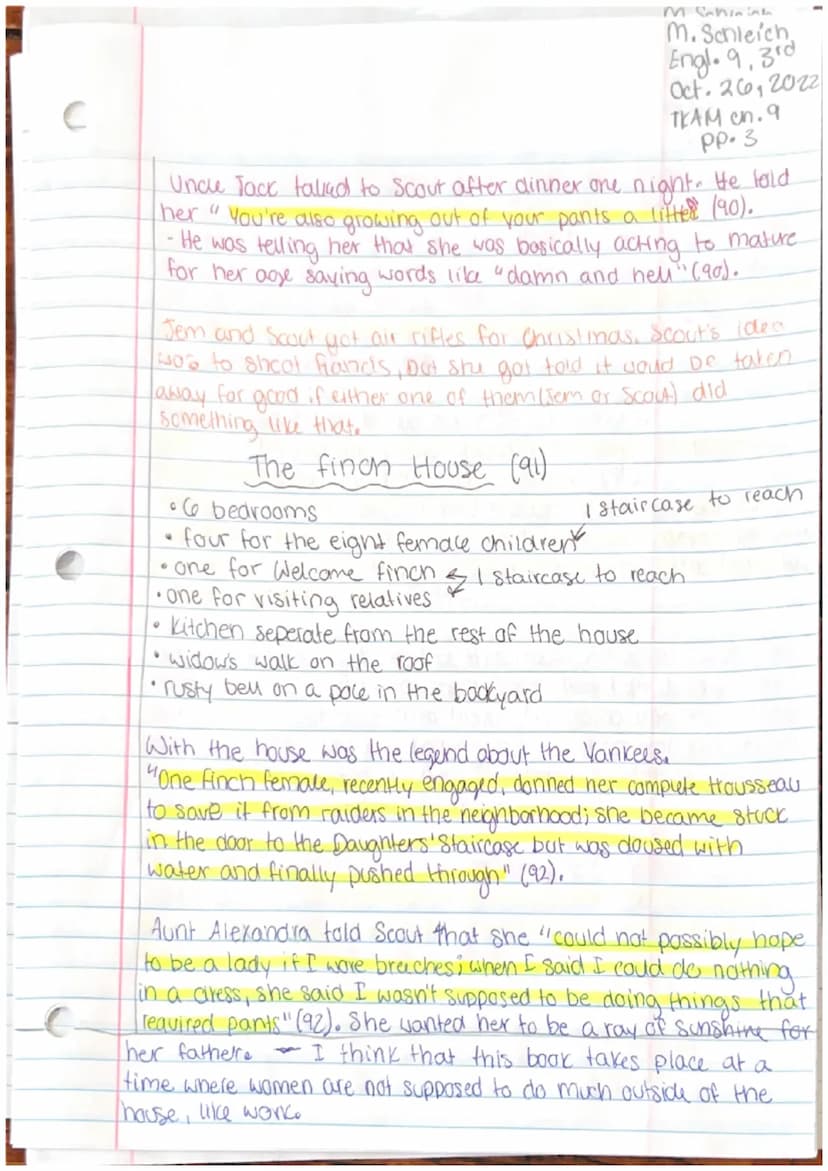 M. Schleich
M. Schleich
Engl. 9, 3rd
Oct. 26, 2022
TKAM ch. 9
pp. 3
Uncle Jack talked to Scout after dinner one night. He told
her "You're also growing out of your pants a little" (90).
- He was telling her that she was basically acting to mature
for her age saying words like "damn and hell" (90).
Jem and Scout got air rifles for Christmas. Scout's idea
was to shoot Francis, but she got told it would be taken
away for good if either one of them (Jem or Scout) did
something like that.
The Finch House (91)
• 6 bedrooms
1 staircase to reach
• four for the eight female children
• one for Welcome Finch 1 staircase to reach
• one for visiting relatives
• kitchen seperate from the rest of the house
• widow's walk on the roof
• rusty bell on a pole in the backyard
With the house was the legend about the Yankees.
"One Finch female, recently engaged, donned her complete trousseau
to save it from raiders in the neighborhood; she became stuck
in the door to the Daughters' Staircase but was doused with
water and finally pushed through" (92).
Aunt Alexandra told Scout that she "could not possibly hope
to be a lady if I wore breeches; when I said I could do nothing
in a dress, she said I wasn't supposed to be doing things that
required pants" (92). She wanted her to be a ray of sunshine for
her father. — I think that this book takes place at a
time where women are not supposed to do much outside of the
house, like work.